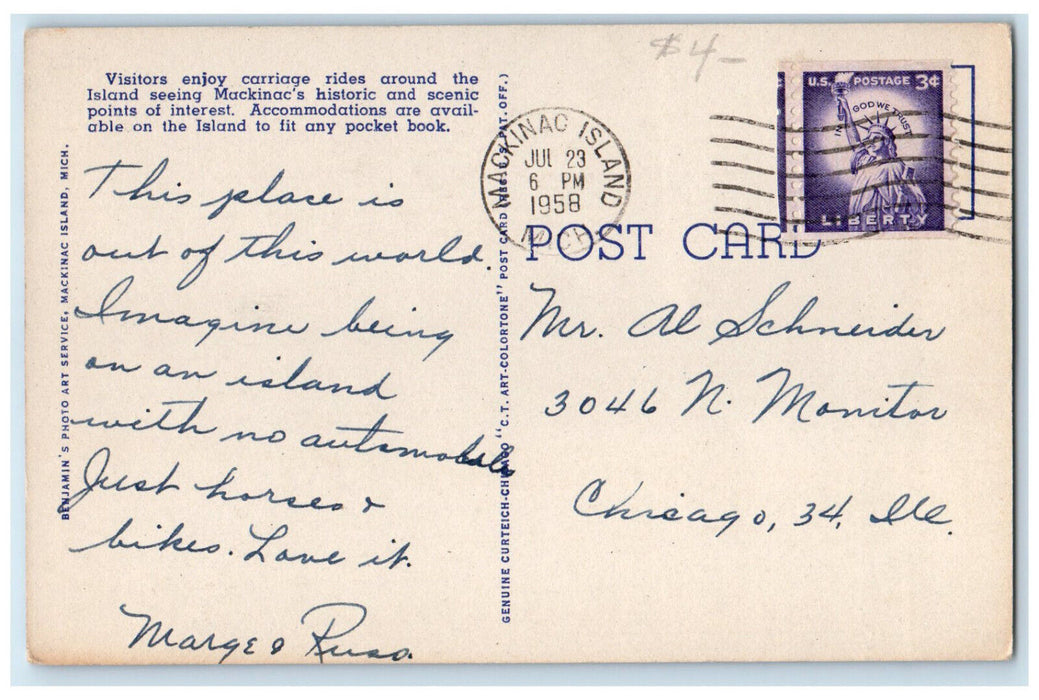 $4-
Visitors enjoy carriage rides around the
Island seeing Mackinac's historic and scenic
points of interest. Accommodations are avail-
able on the Island to fit any pocket book.
BENJAMIN'S PHOTO ART SERVICE, MACKINAC ISLAND, MICH.
This place is
out of this world.
Imagine being
on an island
with no automobiles
Just horses &
bikes. Love it.
Marge &
GENUINE CURTEICH-CHICAGO "C.T. ART-COLORTONE" POST CARD (REG. U.S. PAT. OFF.)
MACKINAC ISLAND
JUL 23
6 PM
1958
MICH
U.S. POSTAGE 3¢
IN GOD WE TRUST
LIBERTY
POST CARD
Mr. Al Schneider
3046 N. Monitor
Chicago, 34, Ill.